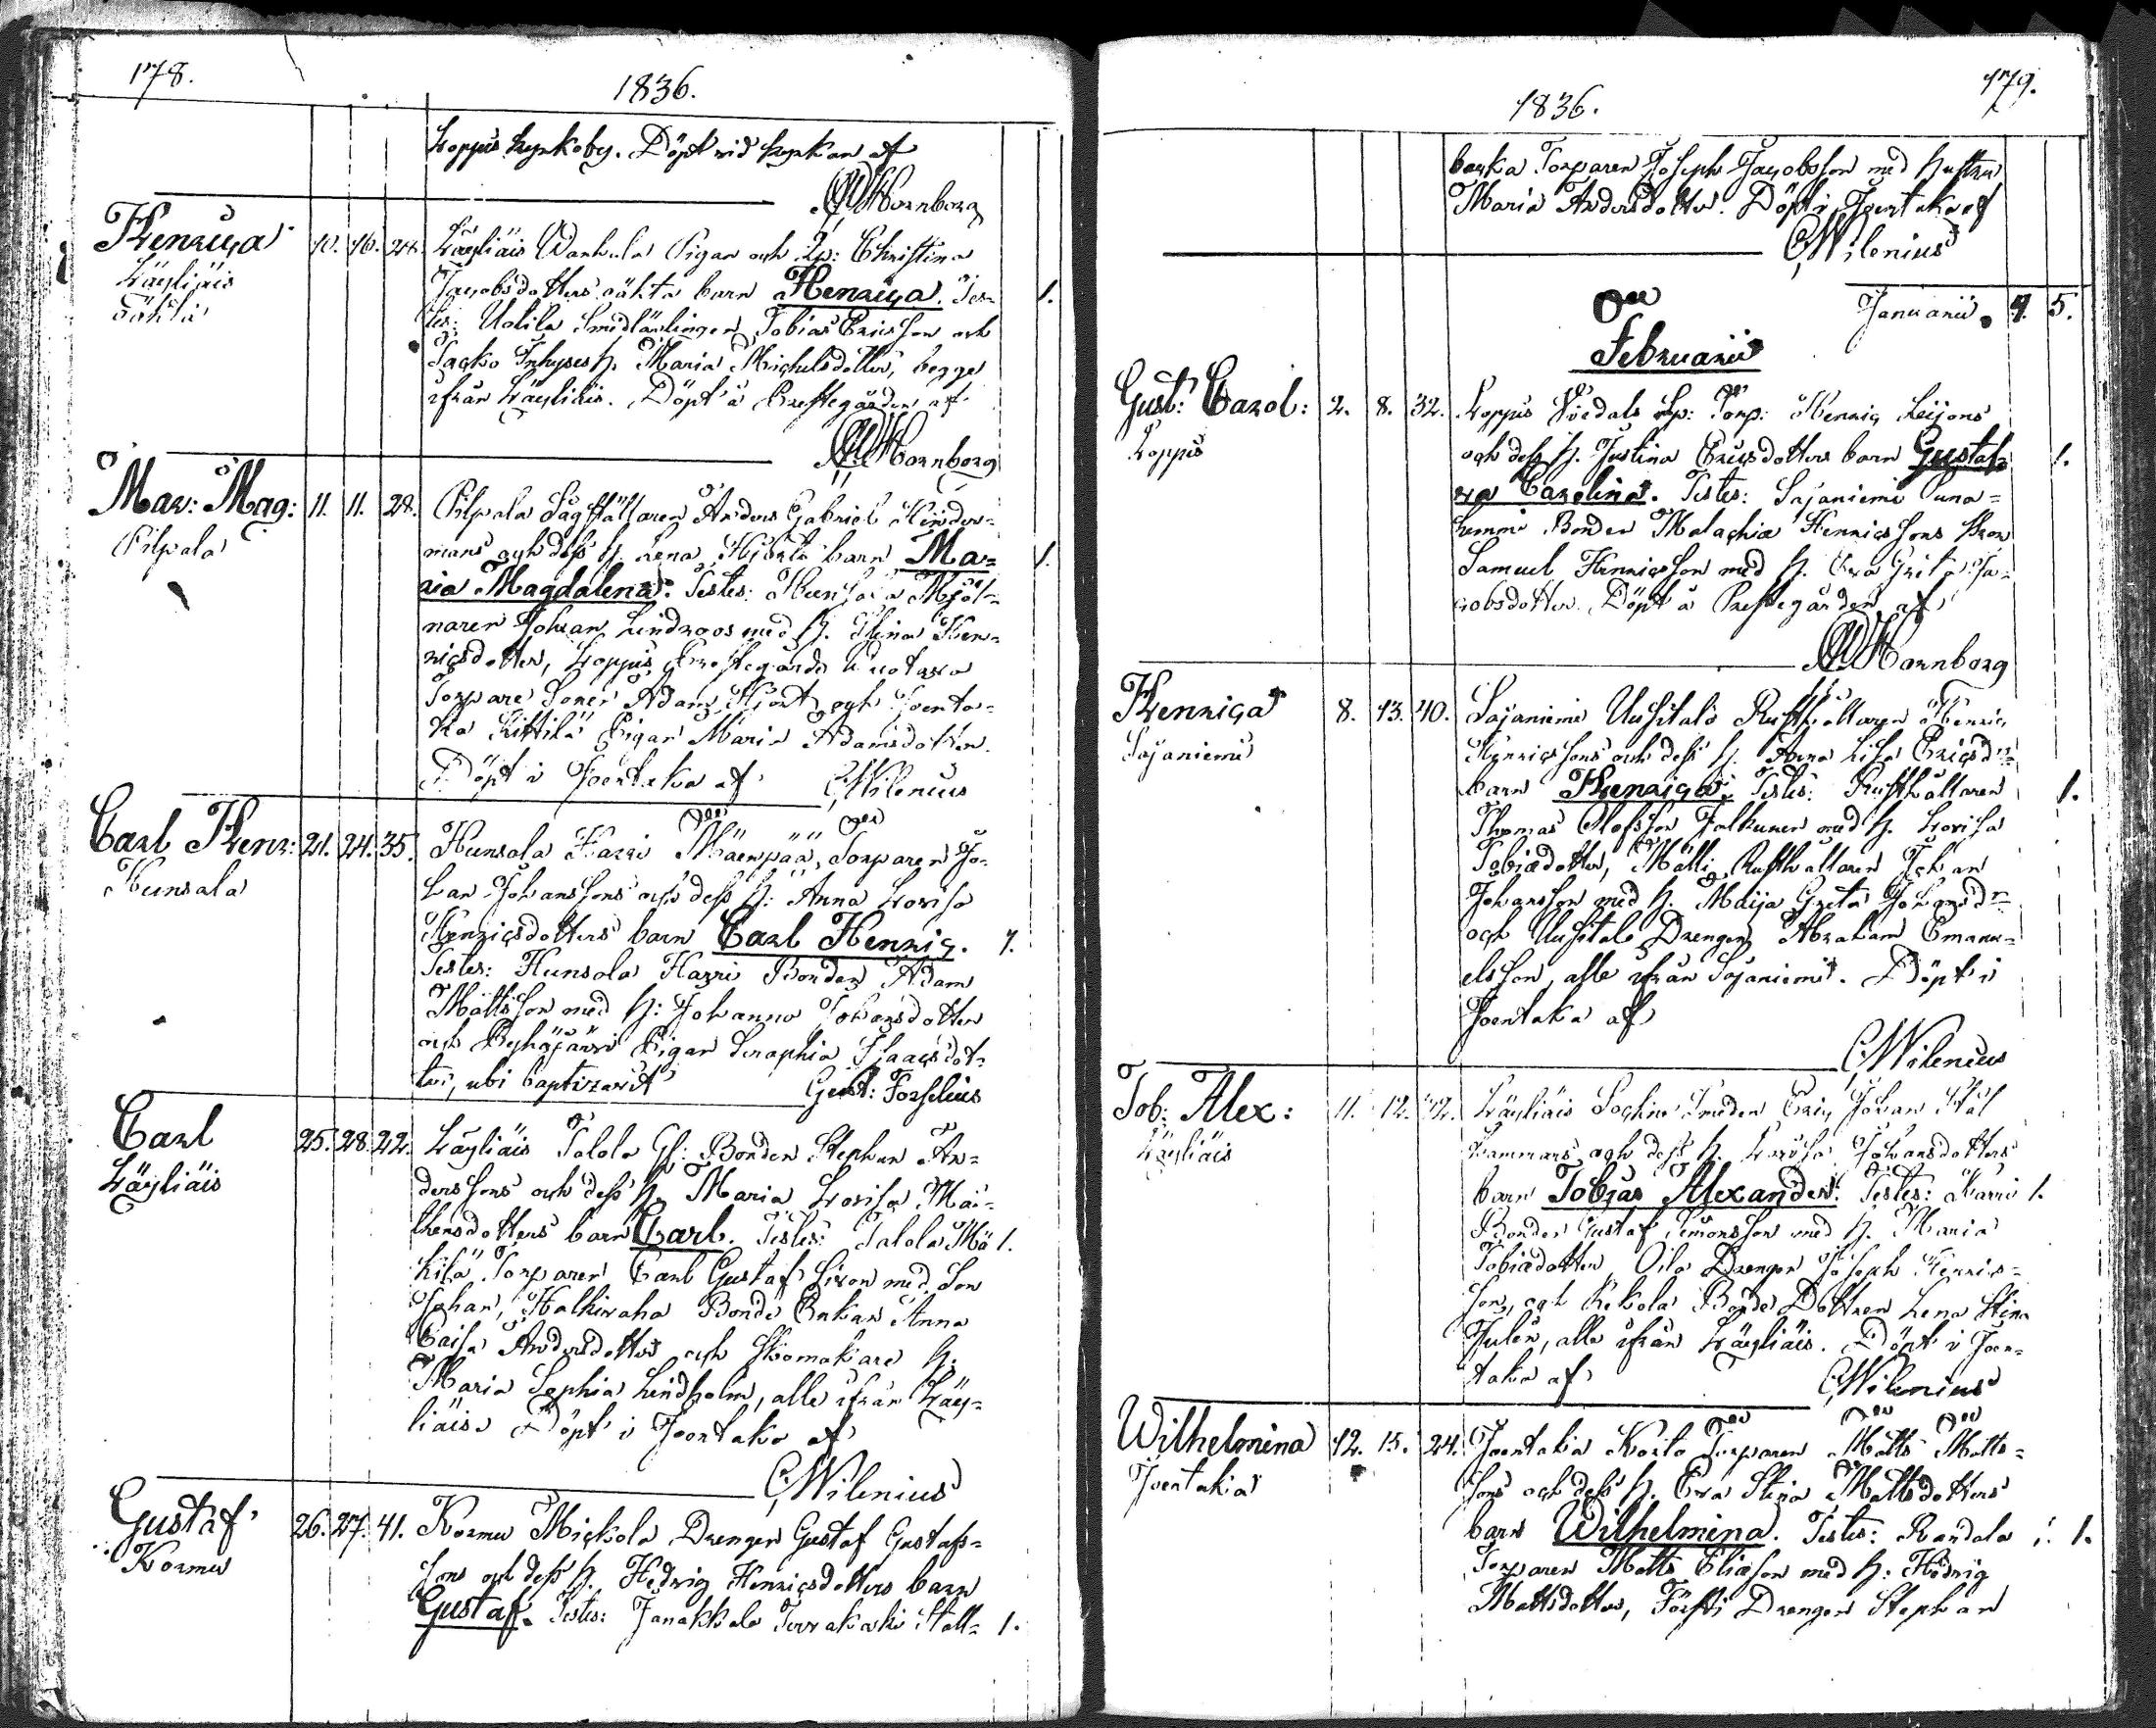 178.
1836.
Loppis kyrkoby. Döpt vid kyrkan af
Hornborg
Henrica 10. 16. 28. Läyliäis Pigan och Christina
Läyliäis
Jacobsdotters oäkta barn Henrica. Tes- 1.
tes: Uotila Smidlärlingen Tobias Ericsson och
Inhyses h. Maria Michelsdotter, begge
ifrån Läyliäis. Döpt å Prestegården af
Hornborg
Mar: Mag: 11. 11. 28. Pilpala Sågställaren Anders Gabriel Hinder-
Pilpala
mans och dess h. Lena Hjorts barn Ma- 1.
ria Magdalena. Testes: Hunsala Mjöl-
naren Johan Lindroos med h. Stina Hen-
ricsdotter, Loppis Prestegårds
Torpare Sonen Adam Hjort och Joenta-
ka Kittilä Pigan Maria Adamsdotter.
Döpt i Joentaka af CWilenius
Carl Henr: 21. 24. 35. Hunsala Harri Mäenpää Torparen Jo-
Hunsala
han Johanssons och dess h: Anna Lovisa
Henricsdotters barn Carl Henric. 1.
Testes: Hunsala Harri Bonden Adam
Mattsson med h: Johanna Johansdotter
och Pigan Seraphia Isaacsdot-
ter, ubi baptizavit Gust: Forselius
Carl 25. 28. 22. Läyliäis Talola Bonden Stephan An-
Läyliäis
derssons och dess h. Maria Lovisa Mat-
thensdotters barn Carl. Testes: Talola Mä 1.
kilä Torparen Carl Gustaf med Son
Johan, Halkivaha Bonde Enkan Anna
Caisa Andersdotter och Skomakare h.
Maria Sophia Lindholm, alle ifrån Läy-
liäis. Döpt i Joentaka af
CWilenius
Gustaf 26. 27. 41. Kormu Mickola Drengen Gustaf Gustafs-
Kormu
sons och dess h. Hedvig Henricsdotters barn
Gustaf. Testes: Janakkala 1.
1836.
179.
backa Torparen Joseph Jacobsson med hustru
Maria Andersdotter. Döpt i Joentaka af
CWilenius
Januarii 7. 5.
Februarii
Gust: Carol: 2. 8. 32. Loppis Torp: Henric Leijons
Loppis
och dess h. Justina Ericsdotters barn Gustaf- 1.
va Carolina. Testes: Sajaniemi Puna-
Bonden Malachiæ Henricssons
Samuel Henricsson med h. Eva Greta Ja-
cobsdotter. Döpt å Prestegården af
Hornborg
Henrica 8. 13. 40. Sajaniemi Uusitalo Rusthållaren Henric
Sajaniemi
Henricssons och dess h. Anna Lisa Ericsdr
barn Henrica. Testes: Rusthållaren 1.
Thomas Olofsson Jalkunen med h. Lovisa
Tobiædotter, Mälli Rusthållaren Johan
Johansson med h. Maija Greta Johansdr
och Uusitalo Drengen Abraham Emanu-
elsson, alle ifrån Sajaniemi. Döpt i
Joentaka af
CWilenius
Tob: Alex: 11. 12. 42. Läyliäis Smeden Eric Johan Stål
Läyliäis
hammars och dess h. Lovisa Johansdotters
barn Tobias Alexander. Testes: Harri 1.
Bonden Gustaf Simonsson med h. Maria
Tobiædotter, Oila Drengen Joseph Henrics-
son, och Kekola Bonde Dottren Lena Stina
Julén, alle ifrån Läyliäis. Döpt i Joen-
taka af CWilenius
Wilhelmina 12. 15. 24. Joentaka Korto Torparen Matts Matts-
Joentaka
sons och dess h. Eva Stina Mattsdotters
barn Wilhelmina. Testes: Randala 1.
Torparen Matts Eliæson med h: Hedvig
Mattsdotter, Drengen Stephan